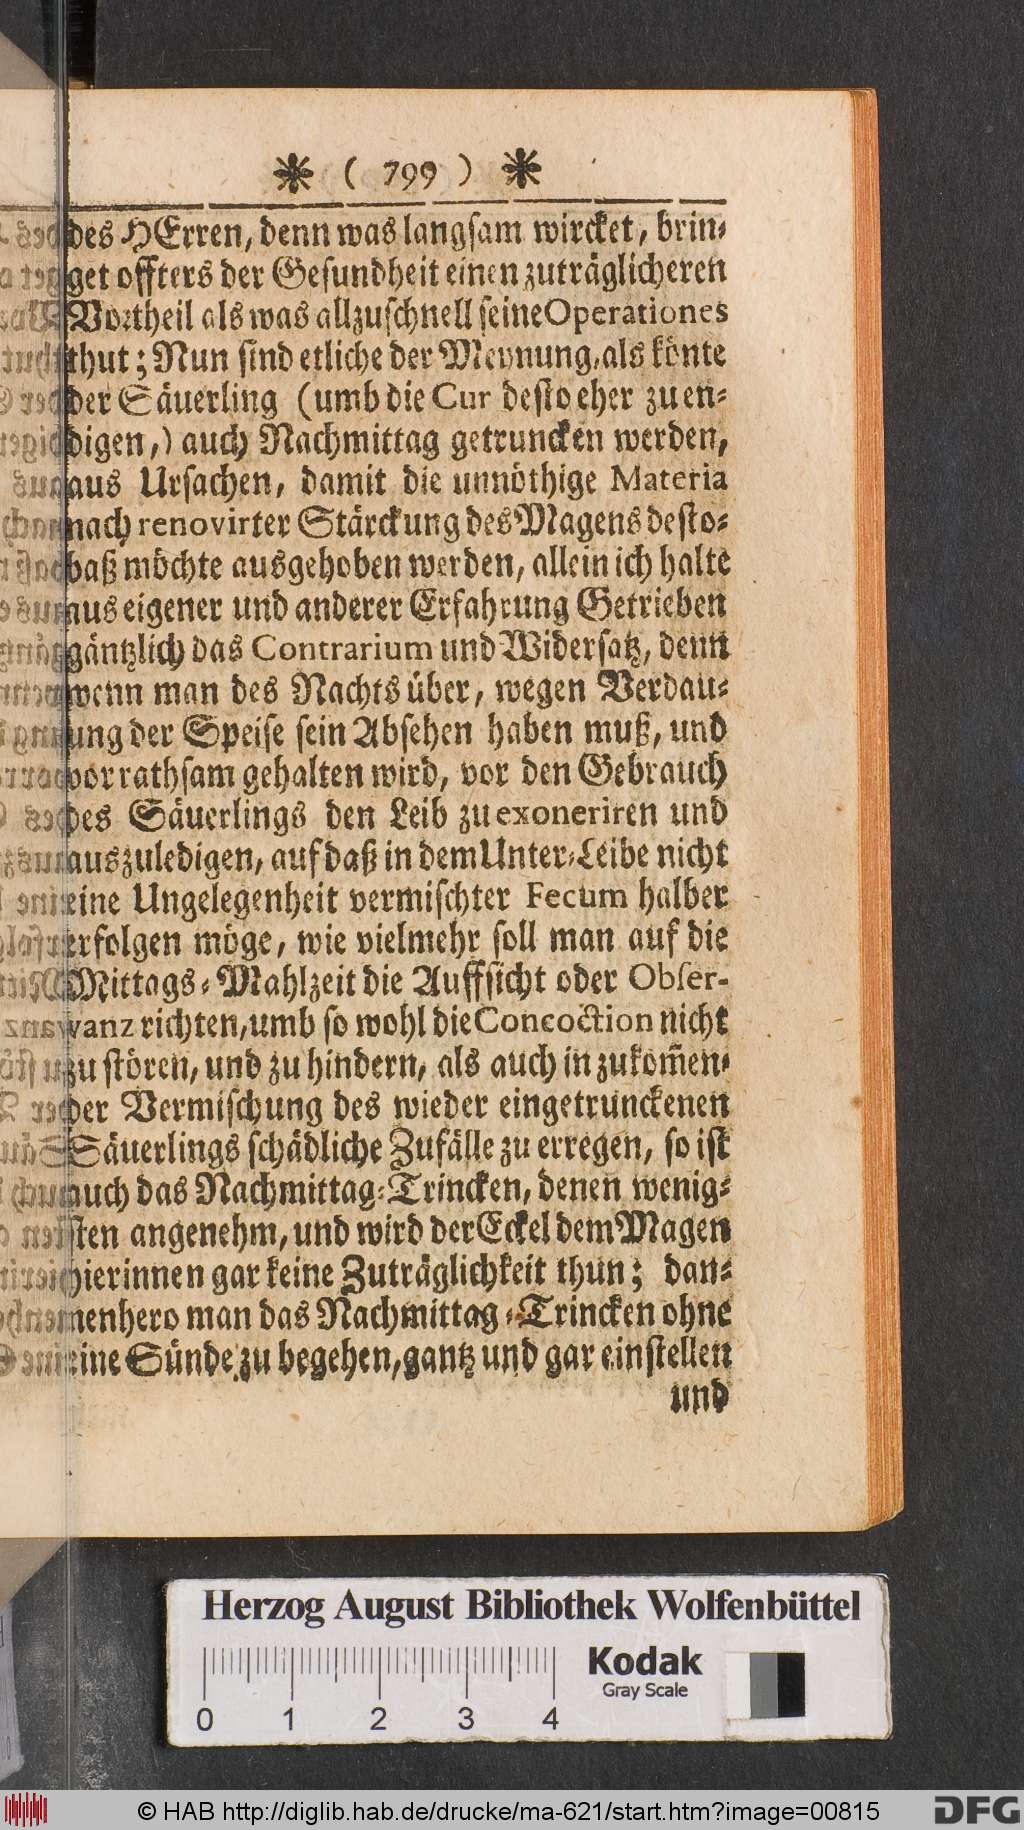 * ( 799 ) *
des HErren, denn was langsam wircket, brin⸗
get offters der Gesundheit einen zuträglicheren
Vortheil als was allzuschnell seine Operationes
thut; Nun sind etliche der Meynung, als könte
der Säuerling (umb die Cur desto eher zu en⸗
digen,) auch Nachmittag getruncken werden,
aus Ursachen, damit die unnöthige Materia
nach renovirter Stärckung des Magens desto⸗
baß möchte ausgehoben werden, allein ich halte
aus eigener und anderer Erfahrung Getrieben
gäntzlich das Contrarium und Widersatz, denn
wenn man des Nachts über, wegen Verdau⸗
ung der Speise sein Absehen haben muß, und
vor rathsam gehalten wird, vor den Gebrauch
des Säuerlings den Leib zu exoneriren und
auszuledigen, auf daß in dem Unter⸗Leibe nicht
eine Ungelegenheit vermischter Fecum halber
erfolgen möge, wie vielmehr soll man auf die
Mittags⸗Mahlzeit die Auffsicht oder Obser-
vanz richten, umb so wohl die Concoction nicht
zu stören, und zu hindern, als auch in zukom̃en⸗
der Vermischung des wieder eingetrunckenen
Säuerlings schädliche Zufälle zu erregen, so ist
auch das Nachmittag⸗Trincken, denen wenig⸗
sten angenehm, und wird der Eckel dem Magen
hierinnen gar keine Zuträglichkeit thun; dan⸗
nenhero man das Nachmittag⸗Trincken ohne
eine Sünde zu begehen, gantz und gar einstellen
und
Herzog August Bibliothek Wolfenbüttel
Kodak
Gray Scale
0 1 2 3 4
© HAB http://diglib.hab.de/drucke/ma-621/start.htm?image=00815
DFG